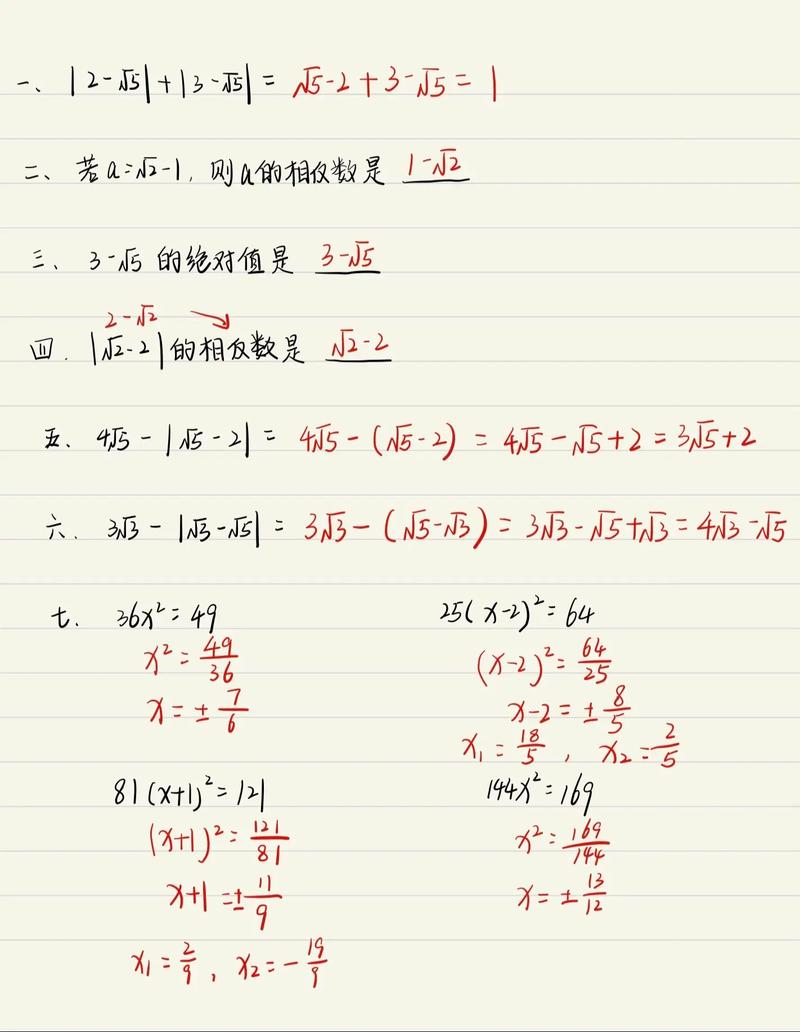 一、|2-√5|+|3-√5|= √5-2+3-√5=1
二、若a=√2-1，则a的相反数是 1-√2
三、3-√5 的绝对值是 3-√5
2-√2
四.|√2-2|的相反数是 √2-2
五、4√5-|√5-2|= 4√5-(√5-2)=4√5-√5+2=3√5+2
六.3√3-|√3-√5|=3√3-(√5-√3)=3√3-√5+√3=4√3-√5
七.36x²=49
x²=49/36
x=±7/6
25(x-2)²=64
(x-2)²=64/25
x-2=±8/5
x₁=18/5，x₂=2/5
81(x+1)²=121
(x+1)²=121/81
x+1=±11/9
x₁=2/9，x₂=-19/9
144x²=169
x²=169/144
x=±13/12